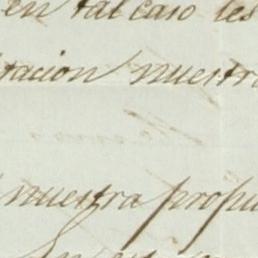 en tal caso les
tacion nuestra
nuestra propu